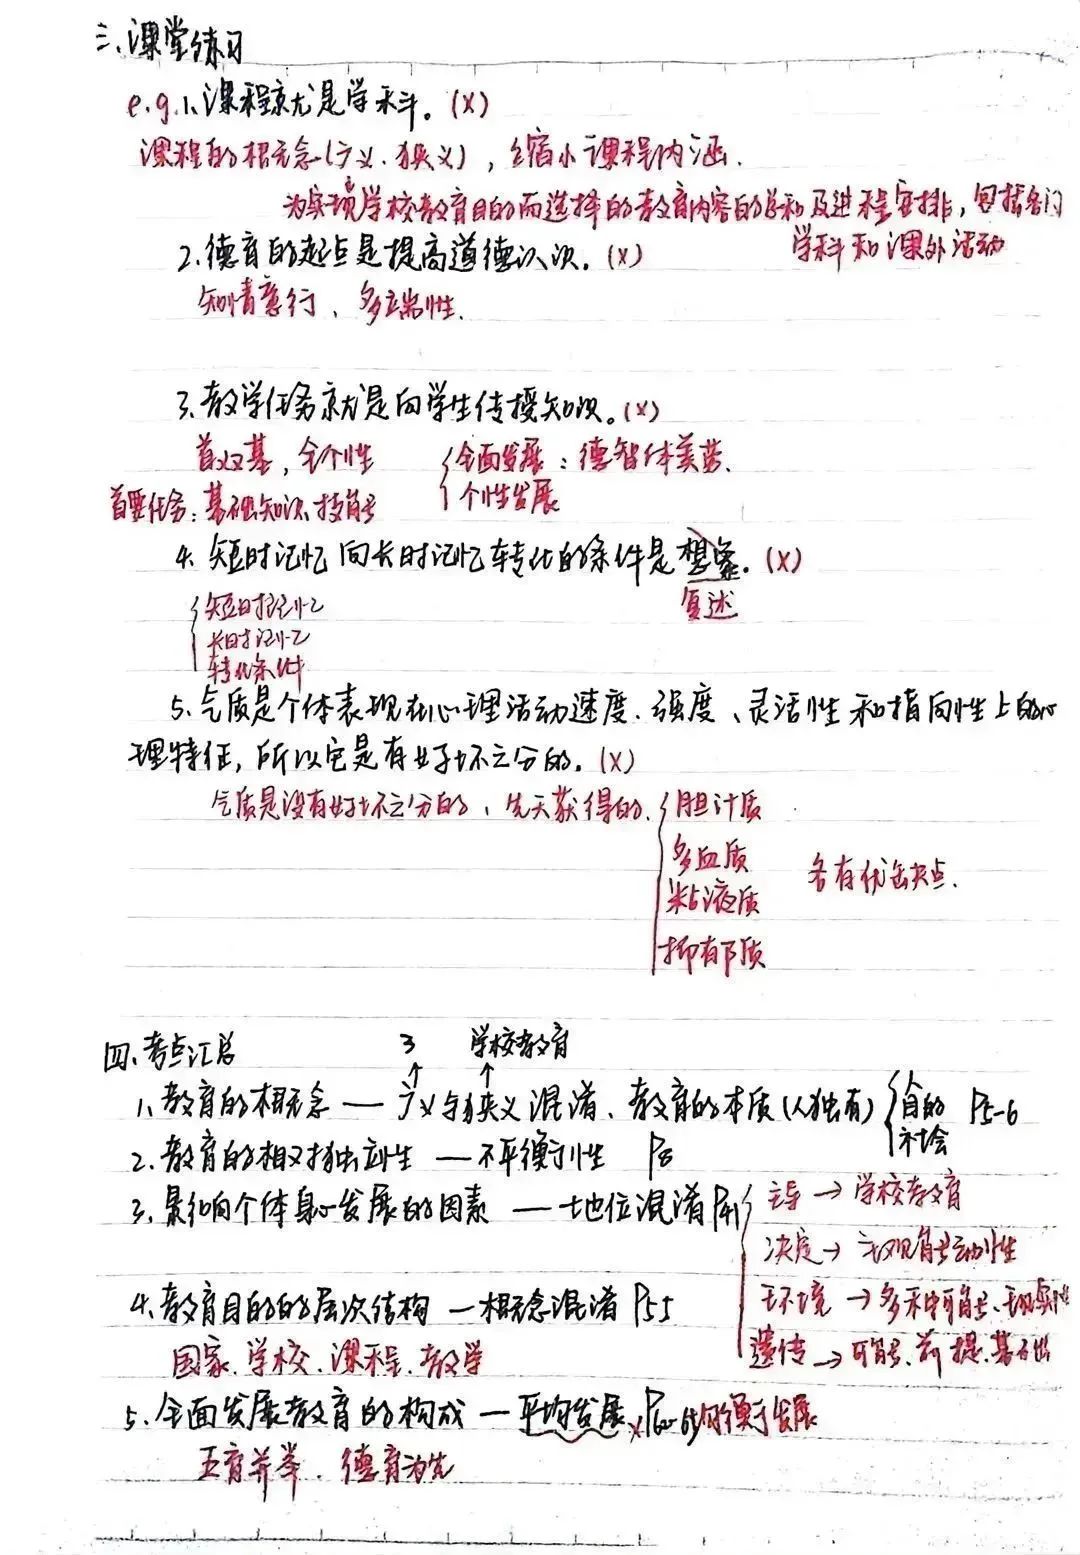 三、课堂练习
e.g.1、课程就是学科。(×)
课程的概念(广义、狭义)，缩小课程内涵.
为实现学校教育目的而选择的教育内容的总和及进程安排，包括各门
学科和课外活动
2、德育的起点是提高道德认识。(×)
知情意行、多端性.
3、教学任务就是向学生传授知识。(×)
首双基，全个性
{全面发展：德智体美劳.
个性发展
首要任务：基础知识、技能
4、短时记忆向长时记忆转化的条件是想象。(×)
复述
{短时记忆
长时记忆
转化条件
5、气质是个体表现在心理活动速度、强度、灵活性和指向性上的心
理特征，所以它是有好坏之分的。(×)
气质是没有好坏之分的、先天获得的.
{胆汁质
多血质
粘液质
抑郁质
各有优缺点.
四、考点汇总
3 学校教育
↑ ↑
1、教育的概念 — 广义与狭义混淆、教育的本质(人独有) {目的 P5-6
社会
2、教育的相对独立性 — 不平衡性 P8
3、影响个体身心发展的因素 — 地位混淆 P41
{主导→学校教育
决定→主观能动性
环境→多种可能、现实性
遗传→可能、前提、基础
4、教育目的的层次结构 — 概念混淆 P55
国家、学校、课程、教学
5、全面发展教育的构成 — 平均发展× P60-65 均衡发展
五育并举、德育为先